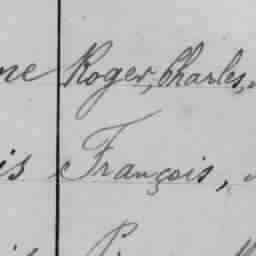 ne Roger, Charles,
is François,